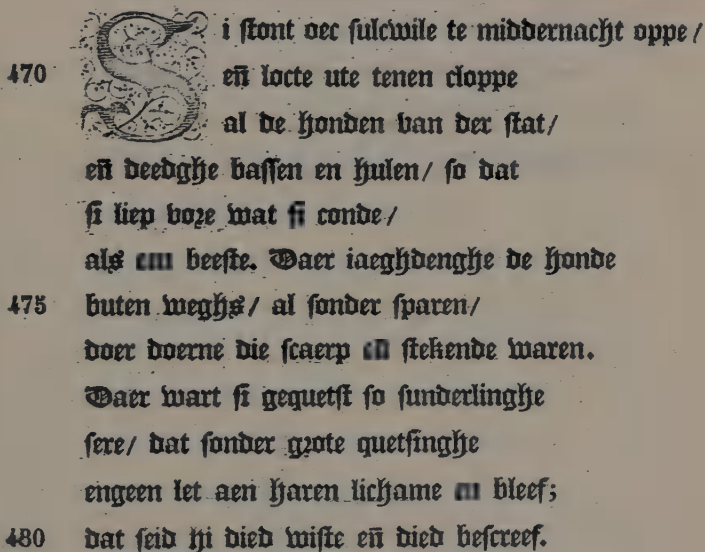 Si stont oec sulcwile te middernacht oppe/
470 eñ locte ute tenen cloppe
al de honden van der stat/
eñ deedghe bassen en hulen/ so dat
si liep vore wat si conde/
als beeste. Daer iaeghdenghe de honde
475 buten weghs/ al sonder sparen/
doer doerne die scaerp eñ stekende waren.
Daer wart si gequetst so sunderlinghe
sere/ dat sonder grote quetsinghe
engeen let aen haren lichame bleef;
480 dat seid hi died wiste eñ died bescreef.